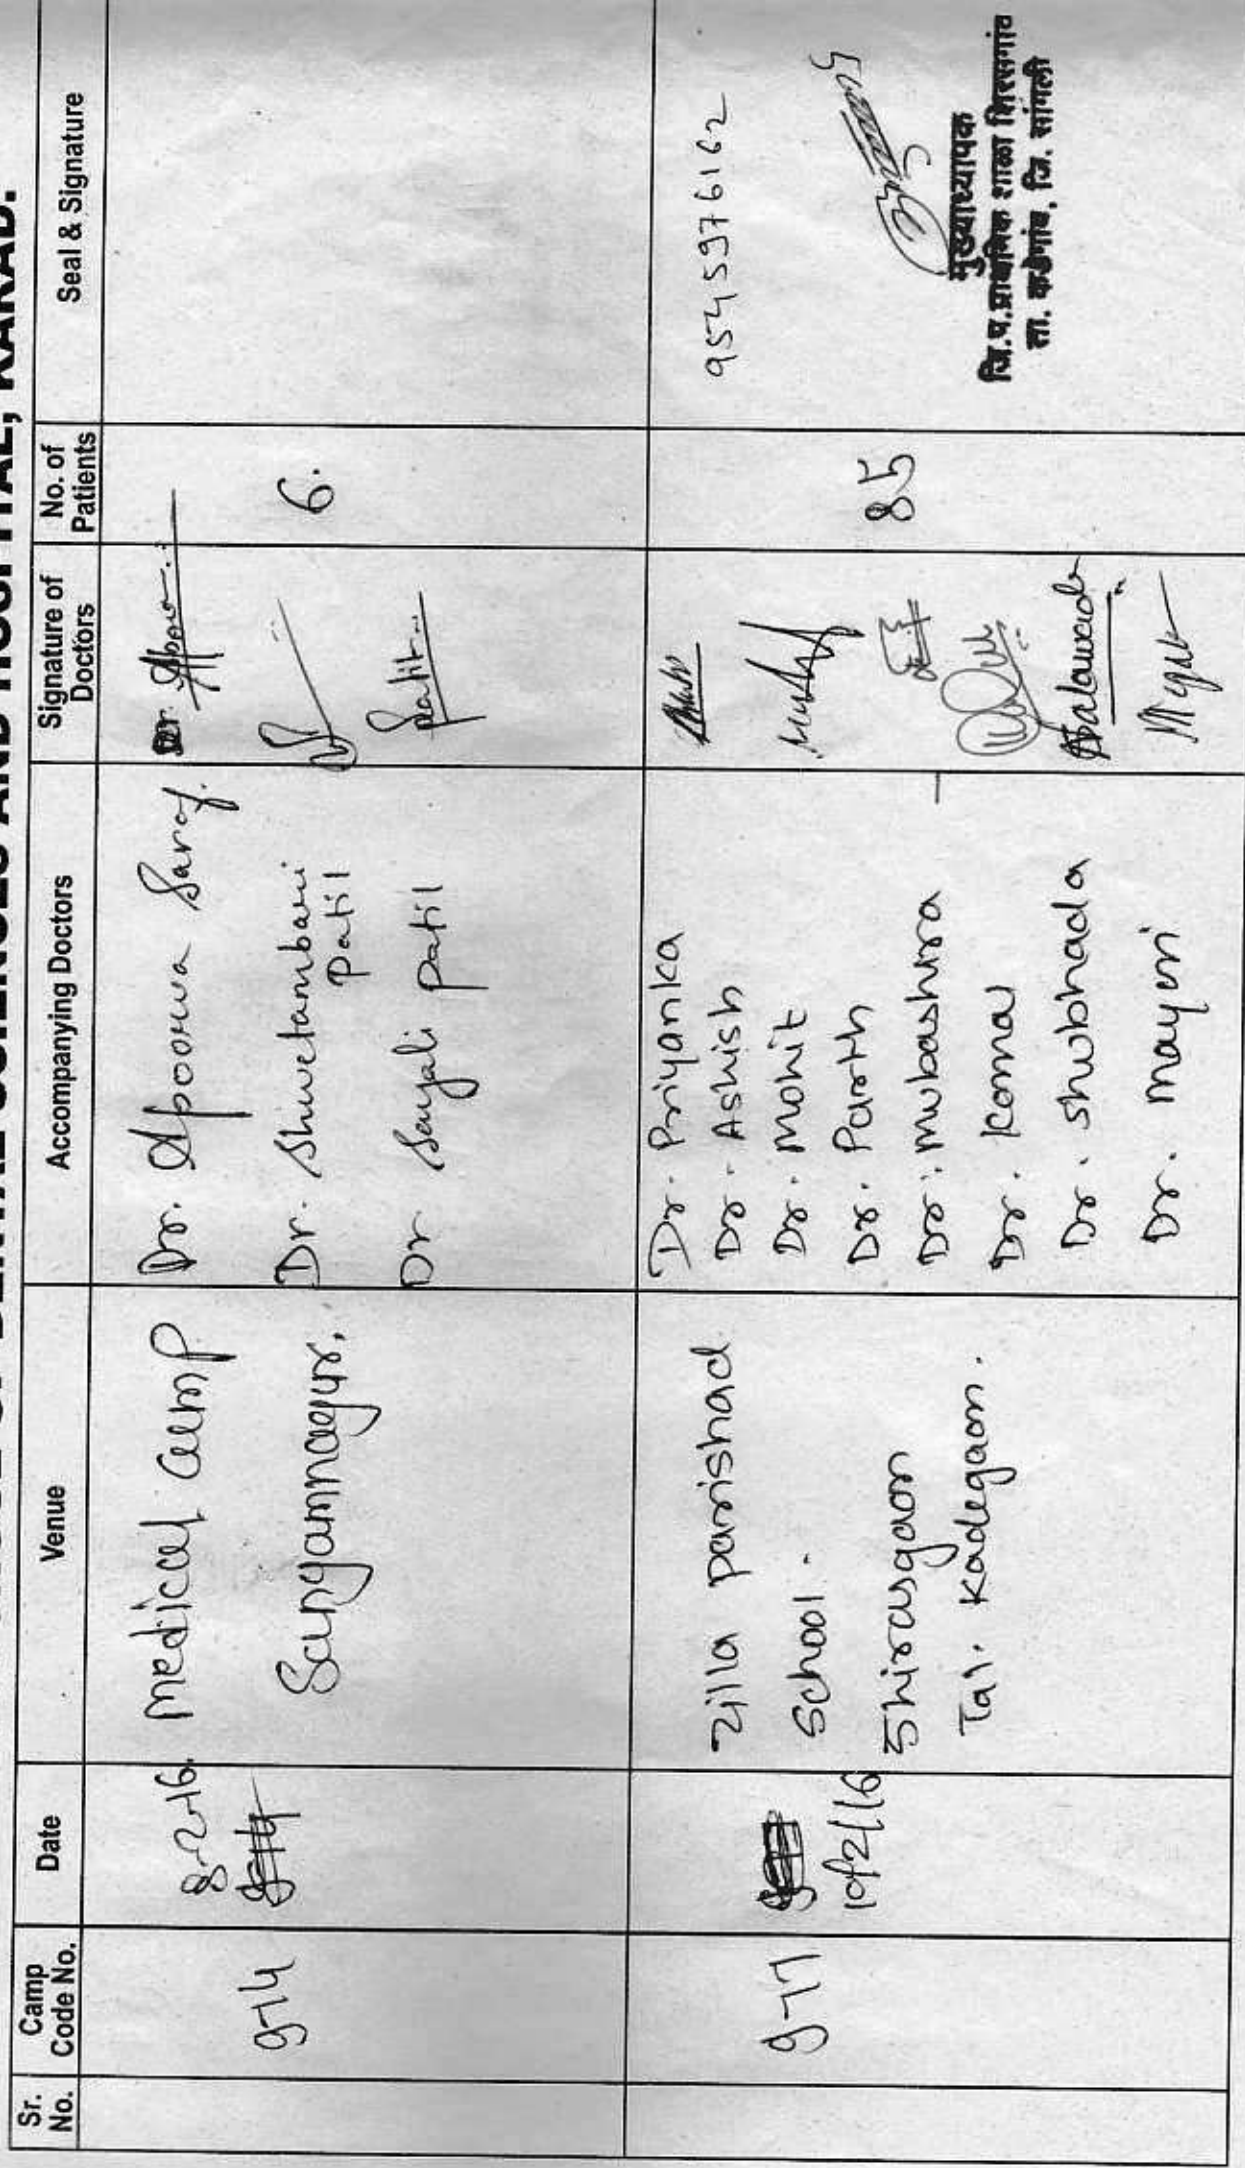 DENTAL SCIENCES AND HOSPITAL, KARAD.
Sr. No.
Camp Code No.
Date
Venue
Accompanying Doctors
Signature of Doctors
No. of Patients
Seal & Signature
9-14
8-2-16.
Medical camp
Sanyamnagar,
Dr. Apoorva Saraf.
Dr. Shwetambari
Patil
Dr Sayali patil
6.
9-17
10/2/16
Zilla parishad
School.
Shirasgaon
Tal. Kadegaon.
Dr. Priyanka
Dr. Ashish
Dr. Mohit
Dr. Parth
Dr. Mubashira
Dr. Komal
Dr. Shubhada
Dr. Mayuri
85
9545976162
मुख्याध्यापक
जि.प.प्राथमिक शाळा शिरसगांव
ता. कडेगांव, जि. सांगली